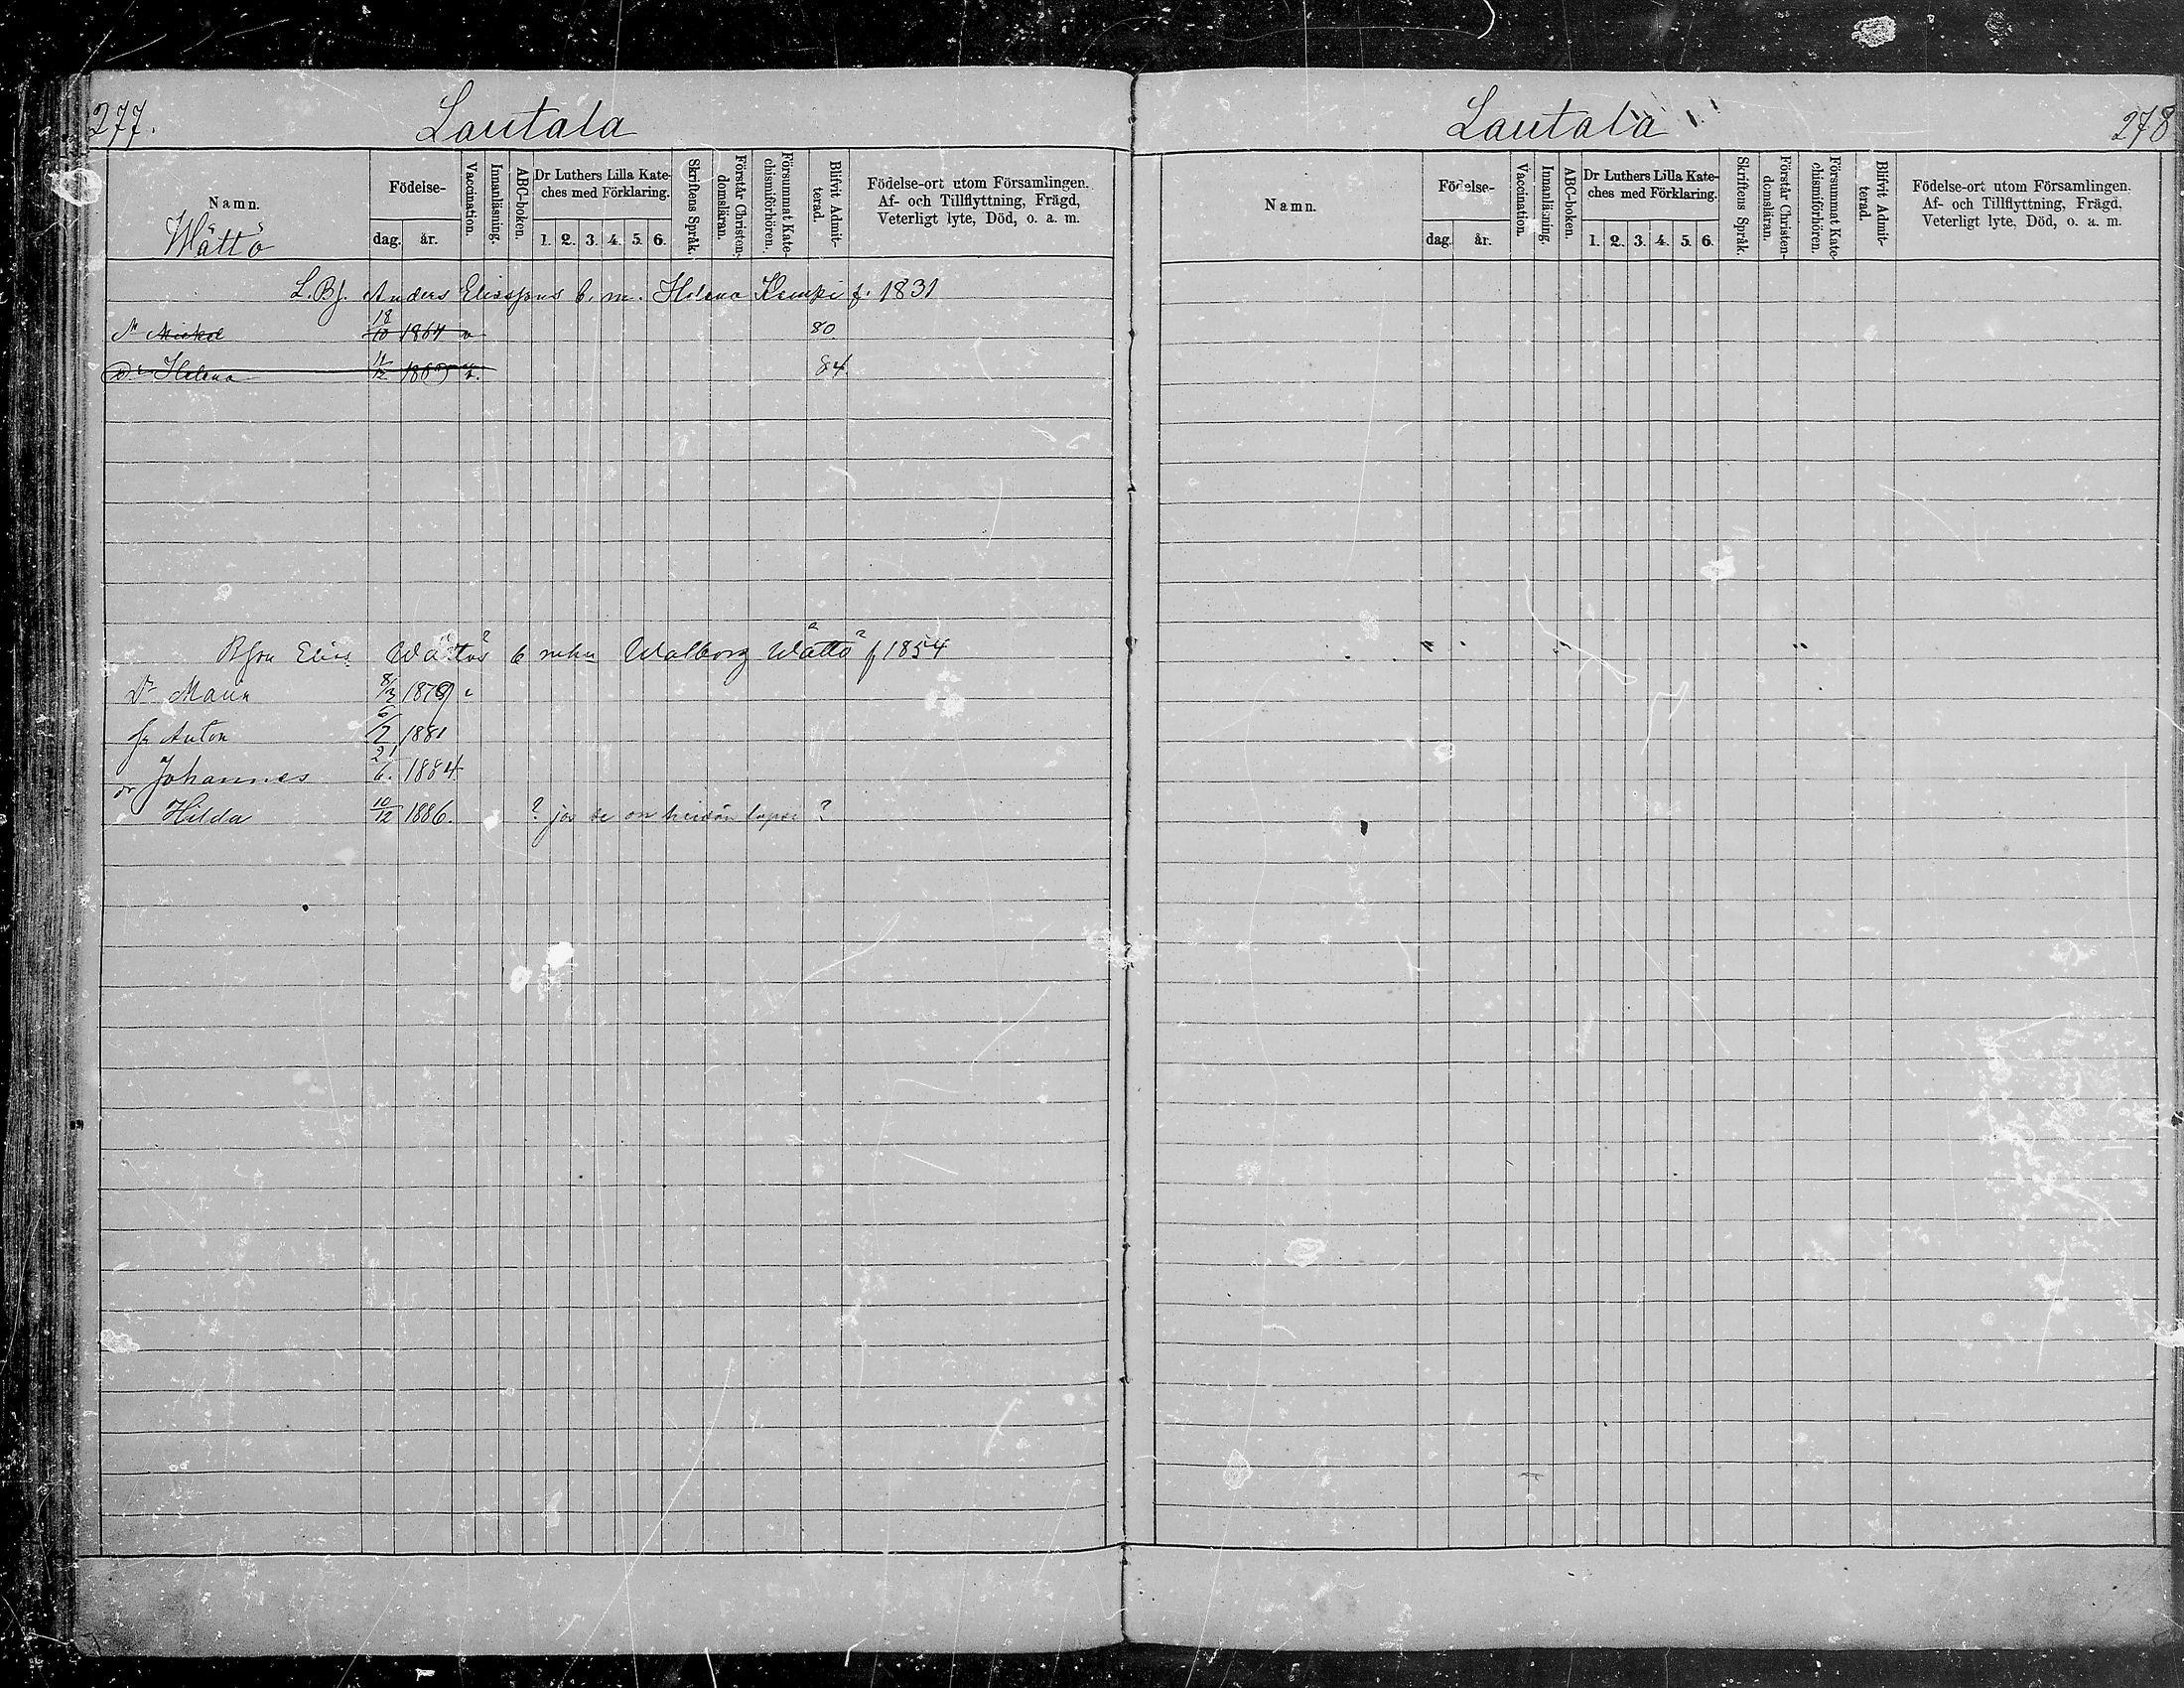 277.
Lautala
Namn.
Wättö
Födelse-
dag. år.
Vaccination.
Innanläsning.
ABC-boken.
Dr Luthers Lilla Kate-
ches med Förklaring.
1. 2. 3. 4. 5. 6.
Skriftens Språk.
Förstår Christen-
domsläran.
Försummat Kate-
chismiförhören.
Blifvit Admit-
terad.
Födelse-ort utom Församlingen.
Af- och Tillflyttning, Frägd,
Veterligt lyte, Död, o. a. m.
L. Bf. Anders Eliassons b. m. Helena Kemki f. 1831
Mickel 18/10 1864 v 80.
Dr Helena 11/12 1865 v. 84
Bson Elias Wättös b enka Walborg Wättö f 1854
Dr Maria 8/3 1879 v
Sn Anton 6/2 1881
Johannes 21/6. 1884
dr Hilda 10/12 1886. ? jos se on heidän lapsi ?
Lautala
278
Namn.
Födelse-
dag. år.
Vaccination.
Innanläsning.
ABC-boken.
Dr Luthers Lilla Kate-
ches med Förklaring.
1. 2. 3. 4. 5. 6.
Skriftens Språk.
Förstår Christen-
domsläran.
Försummat Kate-
chismiförhören.
Blifvit Admit-
terad.
Födelse-ort utom Församlingen.
Af- och Tillflyttning, Frägd,
Veterligt lyte, Död, o. a. m.